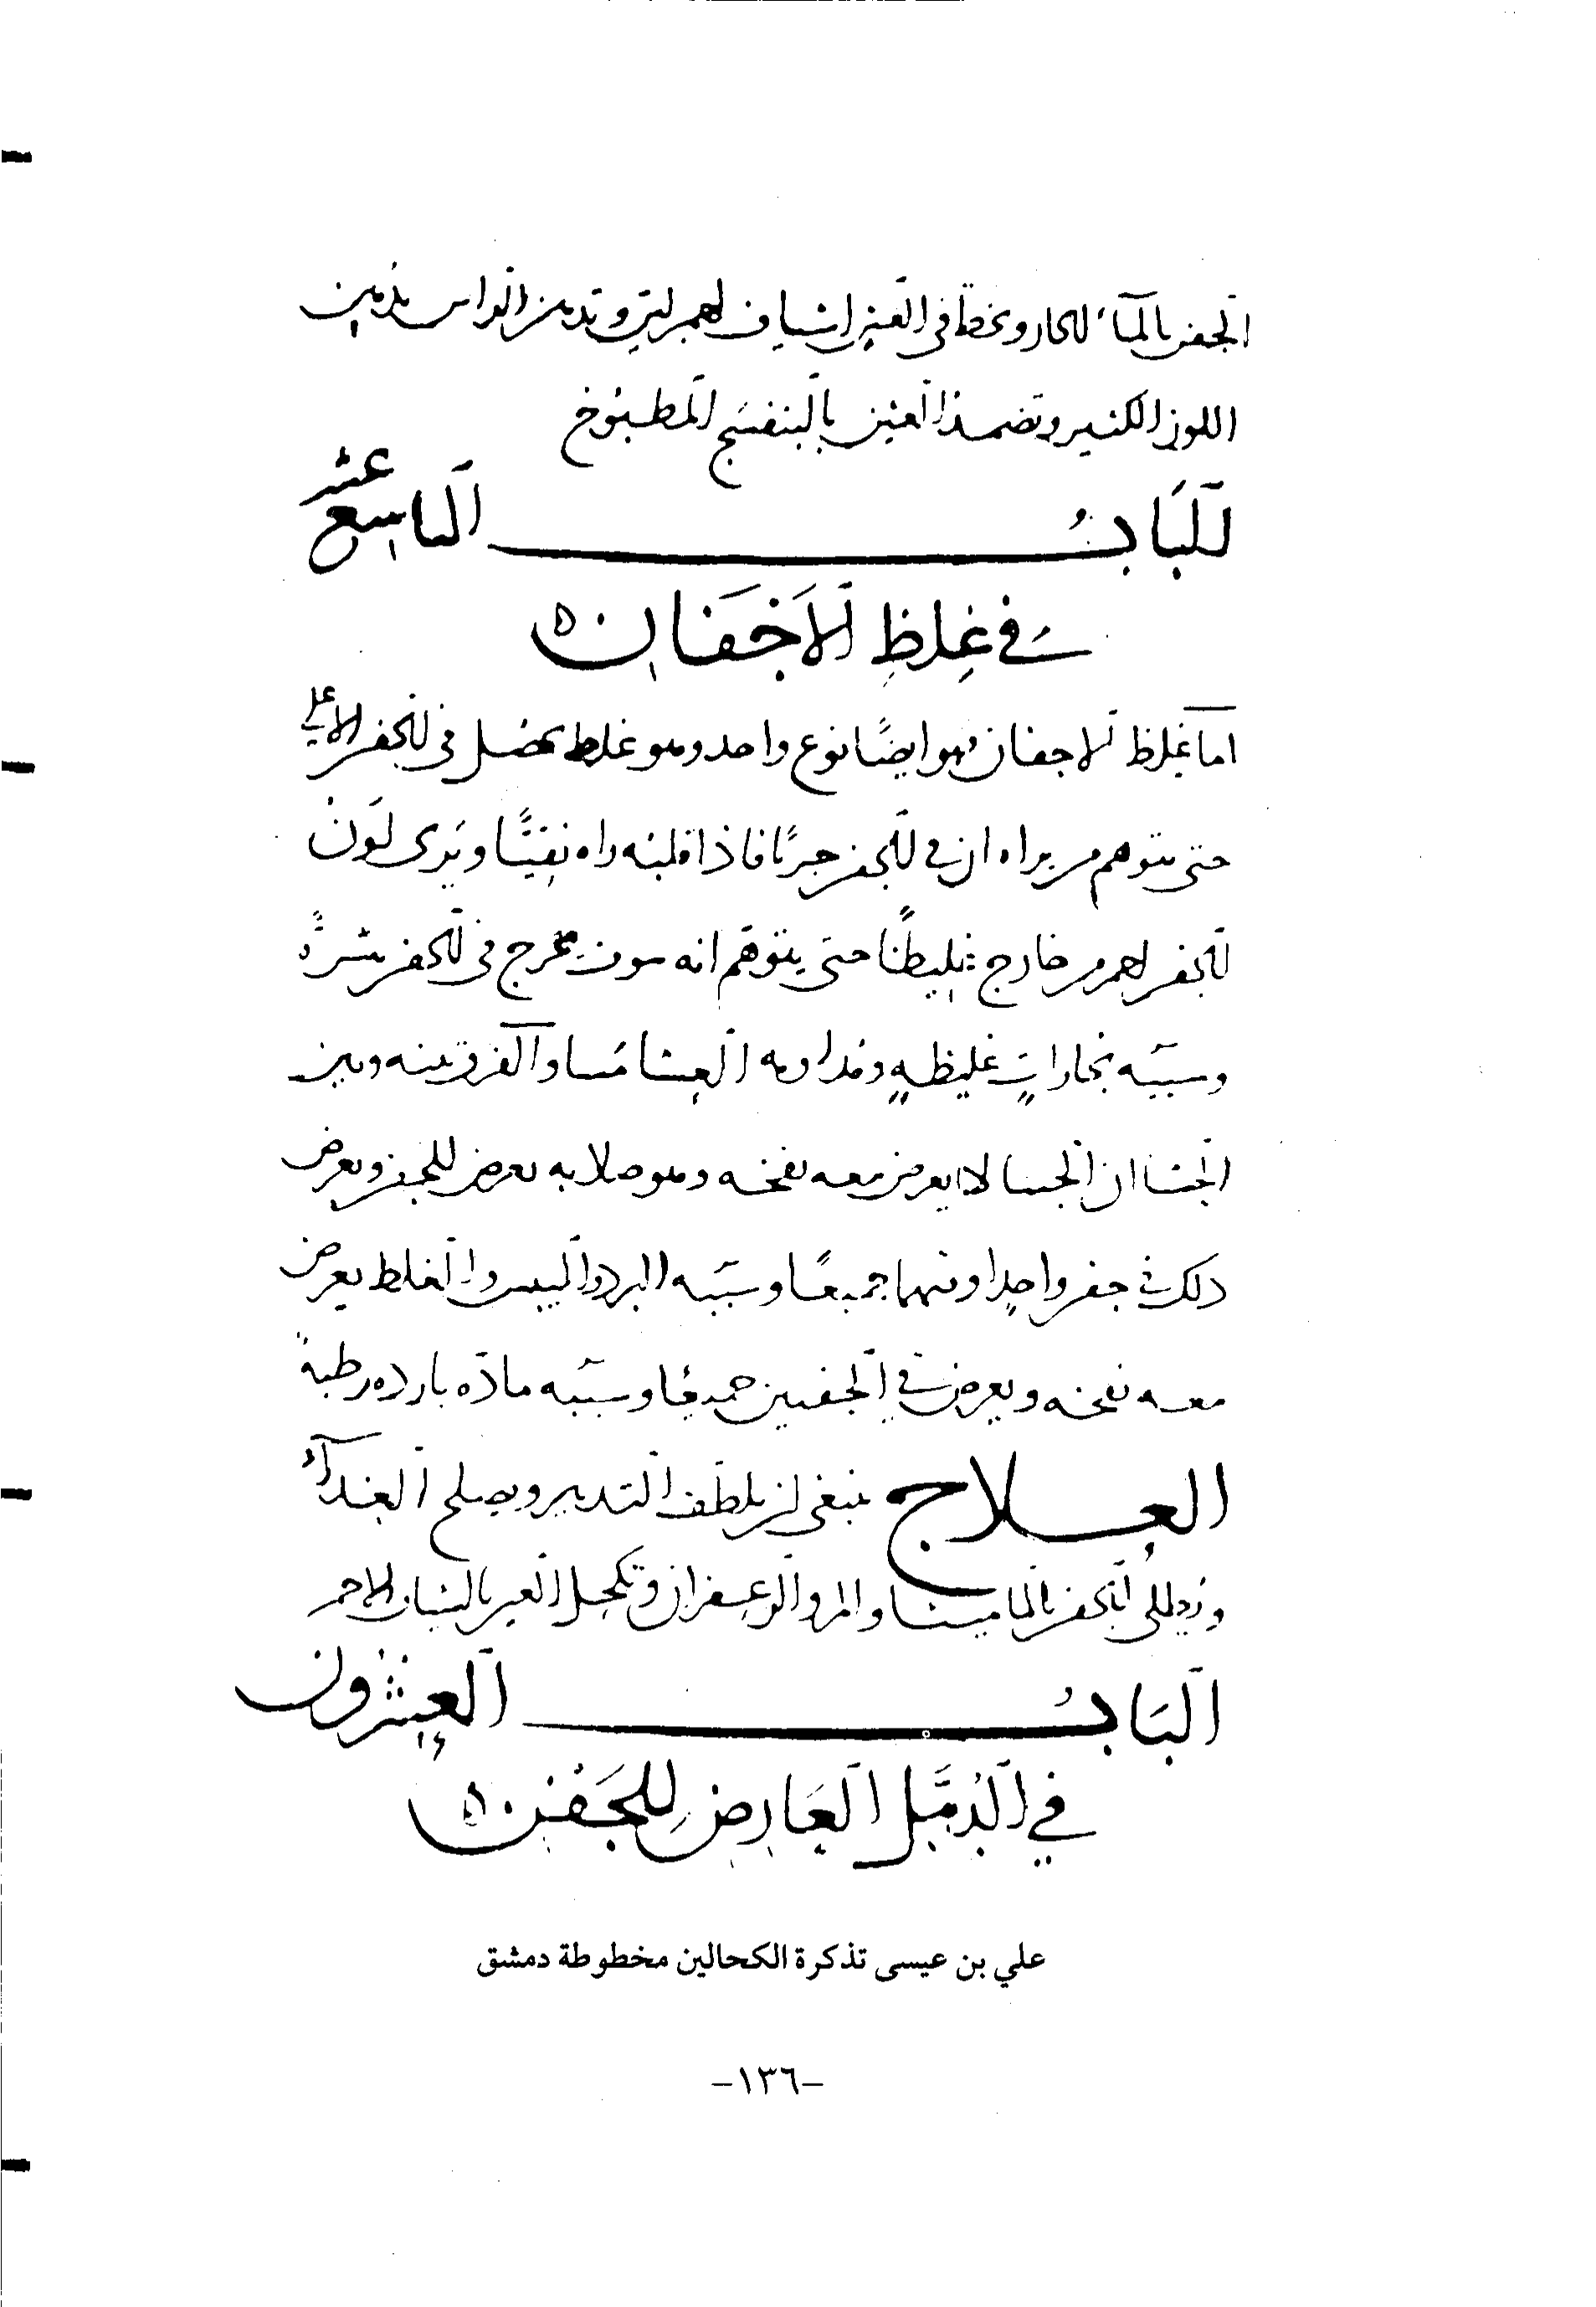 الجفن بالمآء الحار وتخط في العين اشياف احمر لين وتدهن الراس بدهن
اللوز الكثير وتضمد العين بالبنفسج المطبوخ
الباب التاسع عشر
في غلظ الاجفان
اما غلظ الاجفان فهو ايضًا نوع واحد وهو غلظ يحصل في الجفن الاعلى
حتى يتوهم من يراه ان في الجفن جربًا فاذا قلبته راه نقيًّا ويرى لون
الجفن احمر من خارج غليظًا حتى يتوهم انه سوف يخرج في الجفن شرةً
وسببه بخارات غليظه ومداومه العشا مسا والفرق بينه وبين
الجسا ان الجسا لا يعرض معه نفخه وهو صلابه تعرض للجفن ويعرض
ذلك في جفن واحد او فيهما جميعًا وسببه البرد واليبس والغلظ يعرض
معه نفخه ويعرض في الجفنين جميعًا وسببه مادة بارده رطبةً
العلاج ينبغي ان يلطف التدبير ويصلح الغذآء
الجفن بالماميثا والمر والزعفران وتكحل العين الاحمر
الباب العشرون
في الدمل العارض للجفن
علي بن عيسى تذكرة الكحالين مخطوطة دمشق
-١٣٦-